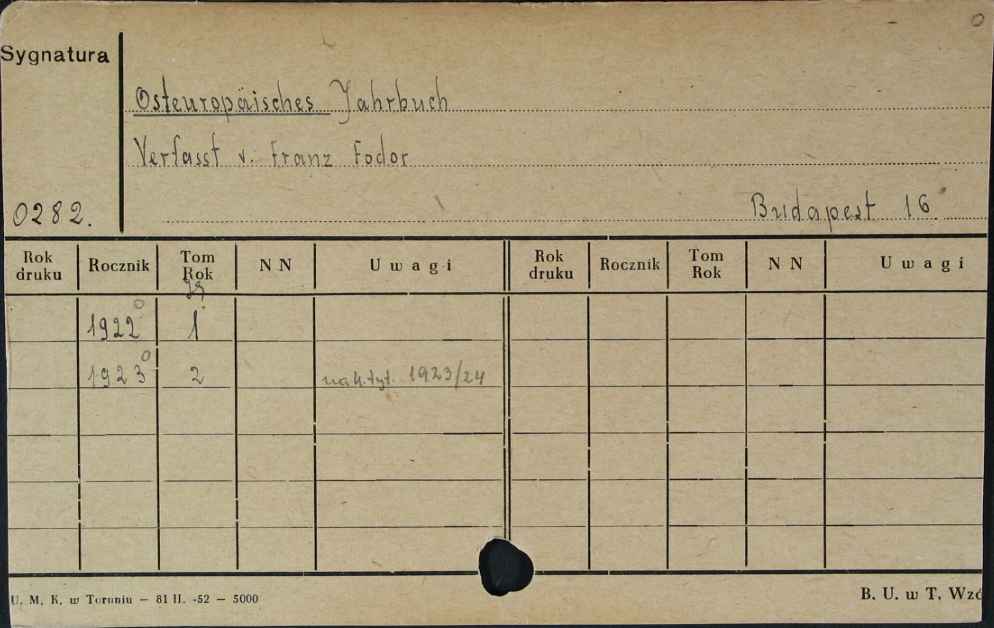 Sygnatura
Osteuropäisches Jahrbuch
Verfasst v. Franz Fodor
0282.
Budapest 16°
Rok druku Rocznik Tom Rok N N Uwagi Rok druku Rocznik Tom Rok N N Uwagi
Jg.
1922 1
1923 2 na k.tyt. 1923/24
U. M. K. w Toruniu — 81 II. -52 — 5000
B. U. w T. Wzó